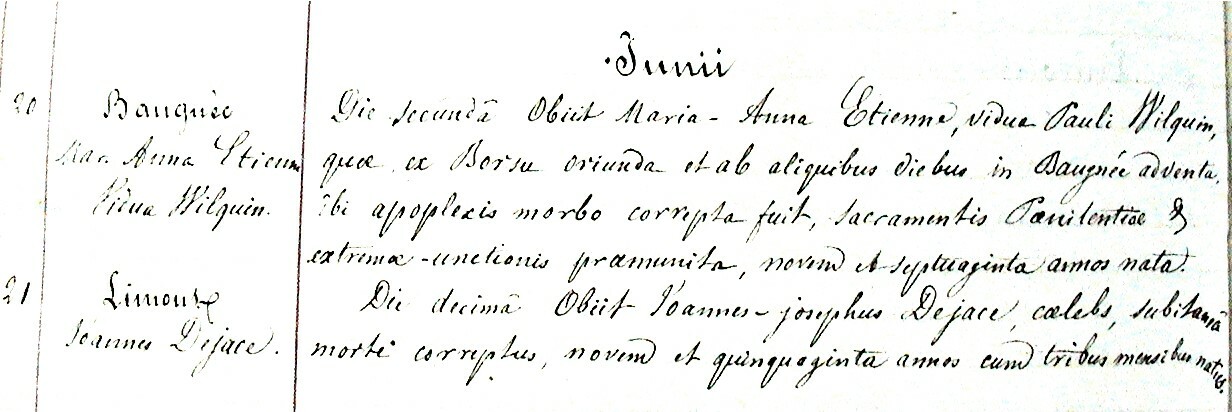 Junii
20 Baugnée Die secundâ Obiit Maria-Anna Etienne, vidua Pauli Wilquin,
Mar. Anna Etienne quæ ex Borsu oriunda et ab aliquibus diebus in Baugnée adventa,
Vidua Wilquin. ibi apoplexis morbo correpta fuit, sacramentis Pœnitentiæ &
extremæ-unctionis præmunita, novem et septuaginta annos nata.
21 Limont Die decimâ Obiit Joannes-josephus Dejace, cœlebs, subitaneâ
Joannes Dejace. morte correptus, novem et quinquaginta annos cum tribus mensibus natus.